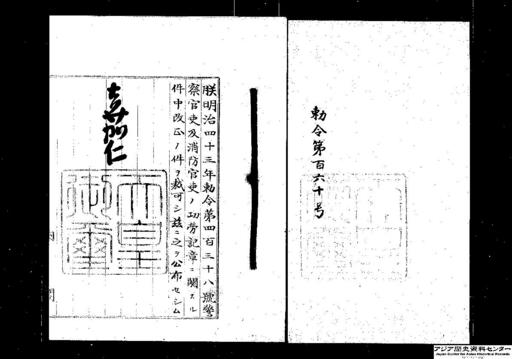 勅令第百六十号
朕明治四十三年勅令第四百三十八號警
察官吏及消防官吏ノ功勞記章ニ關スル
件中改正ノ件ヲ裁可シ茲ニ之ヲ公布セシム
嘉仁
天皇
御璽
アジア歴史資料センター
Japan Center for Asian Historical Records